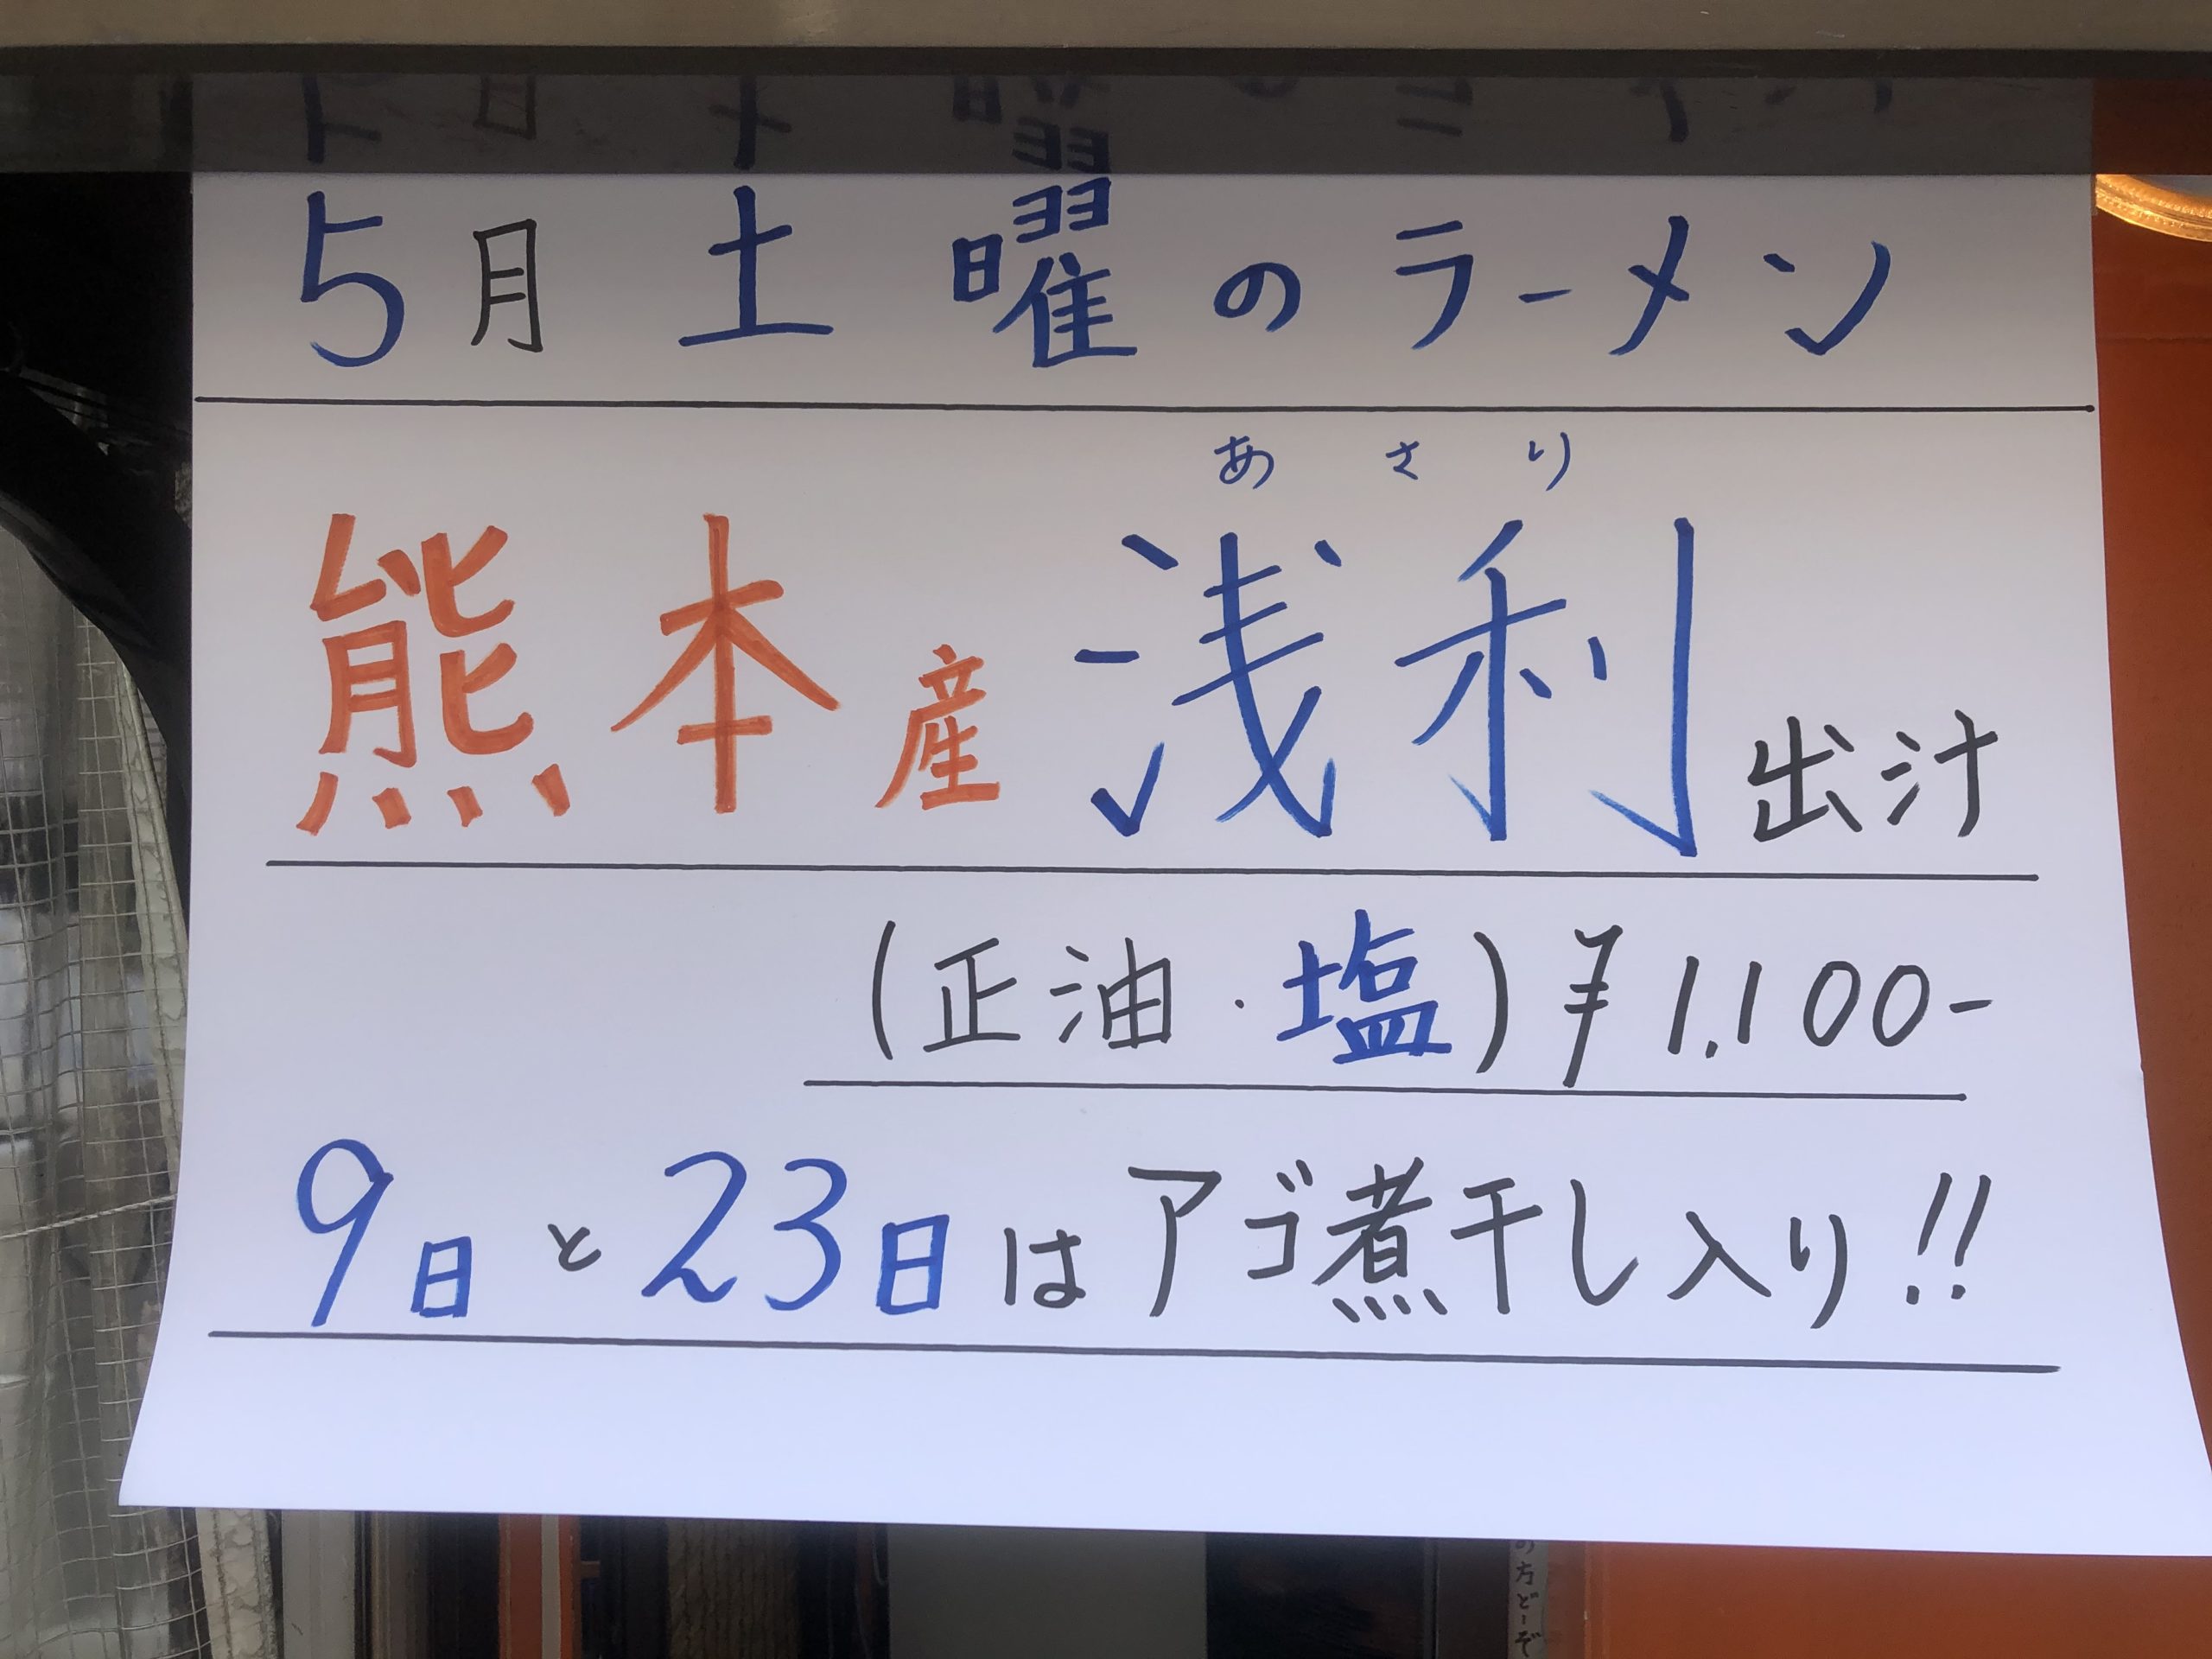 5月土曜のラーメン
あさり
熊本産浅利出汁
(正油・塩)¥1,100-
9日と23日はアゴ煮干し入り!!
の方どーぞ